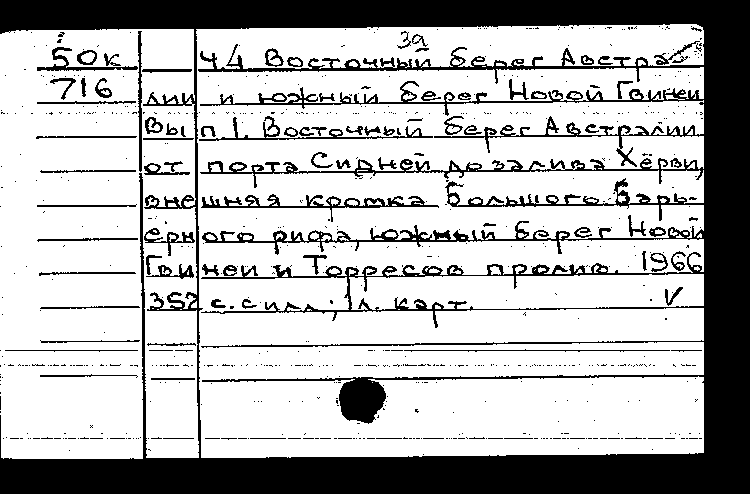 3а
50к Ч.4 Восточный берег Австра-
716 лии и южный берег Новой Гвинеи.
Вып.1. Восточный берег Австралии
от порта Сидней до залива Хёрви,
внешняя кромка Большого Барь-
ерного рифа, южный берег Новой
Гвинеи и Торресов пролив. 1966
352 с. с илл.; 1л. карт. V